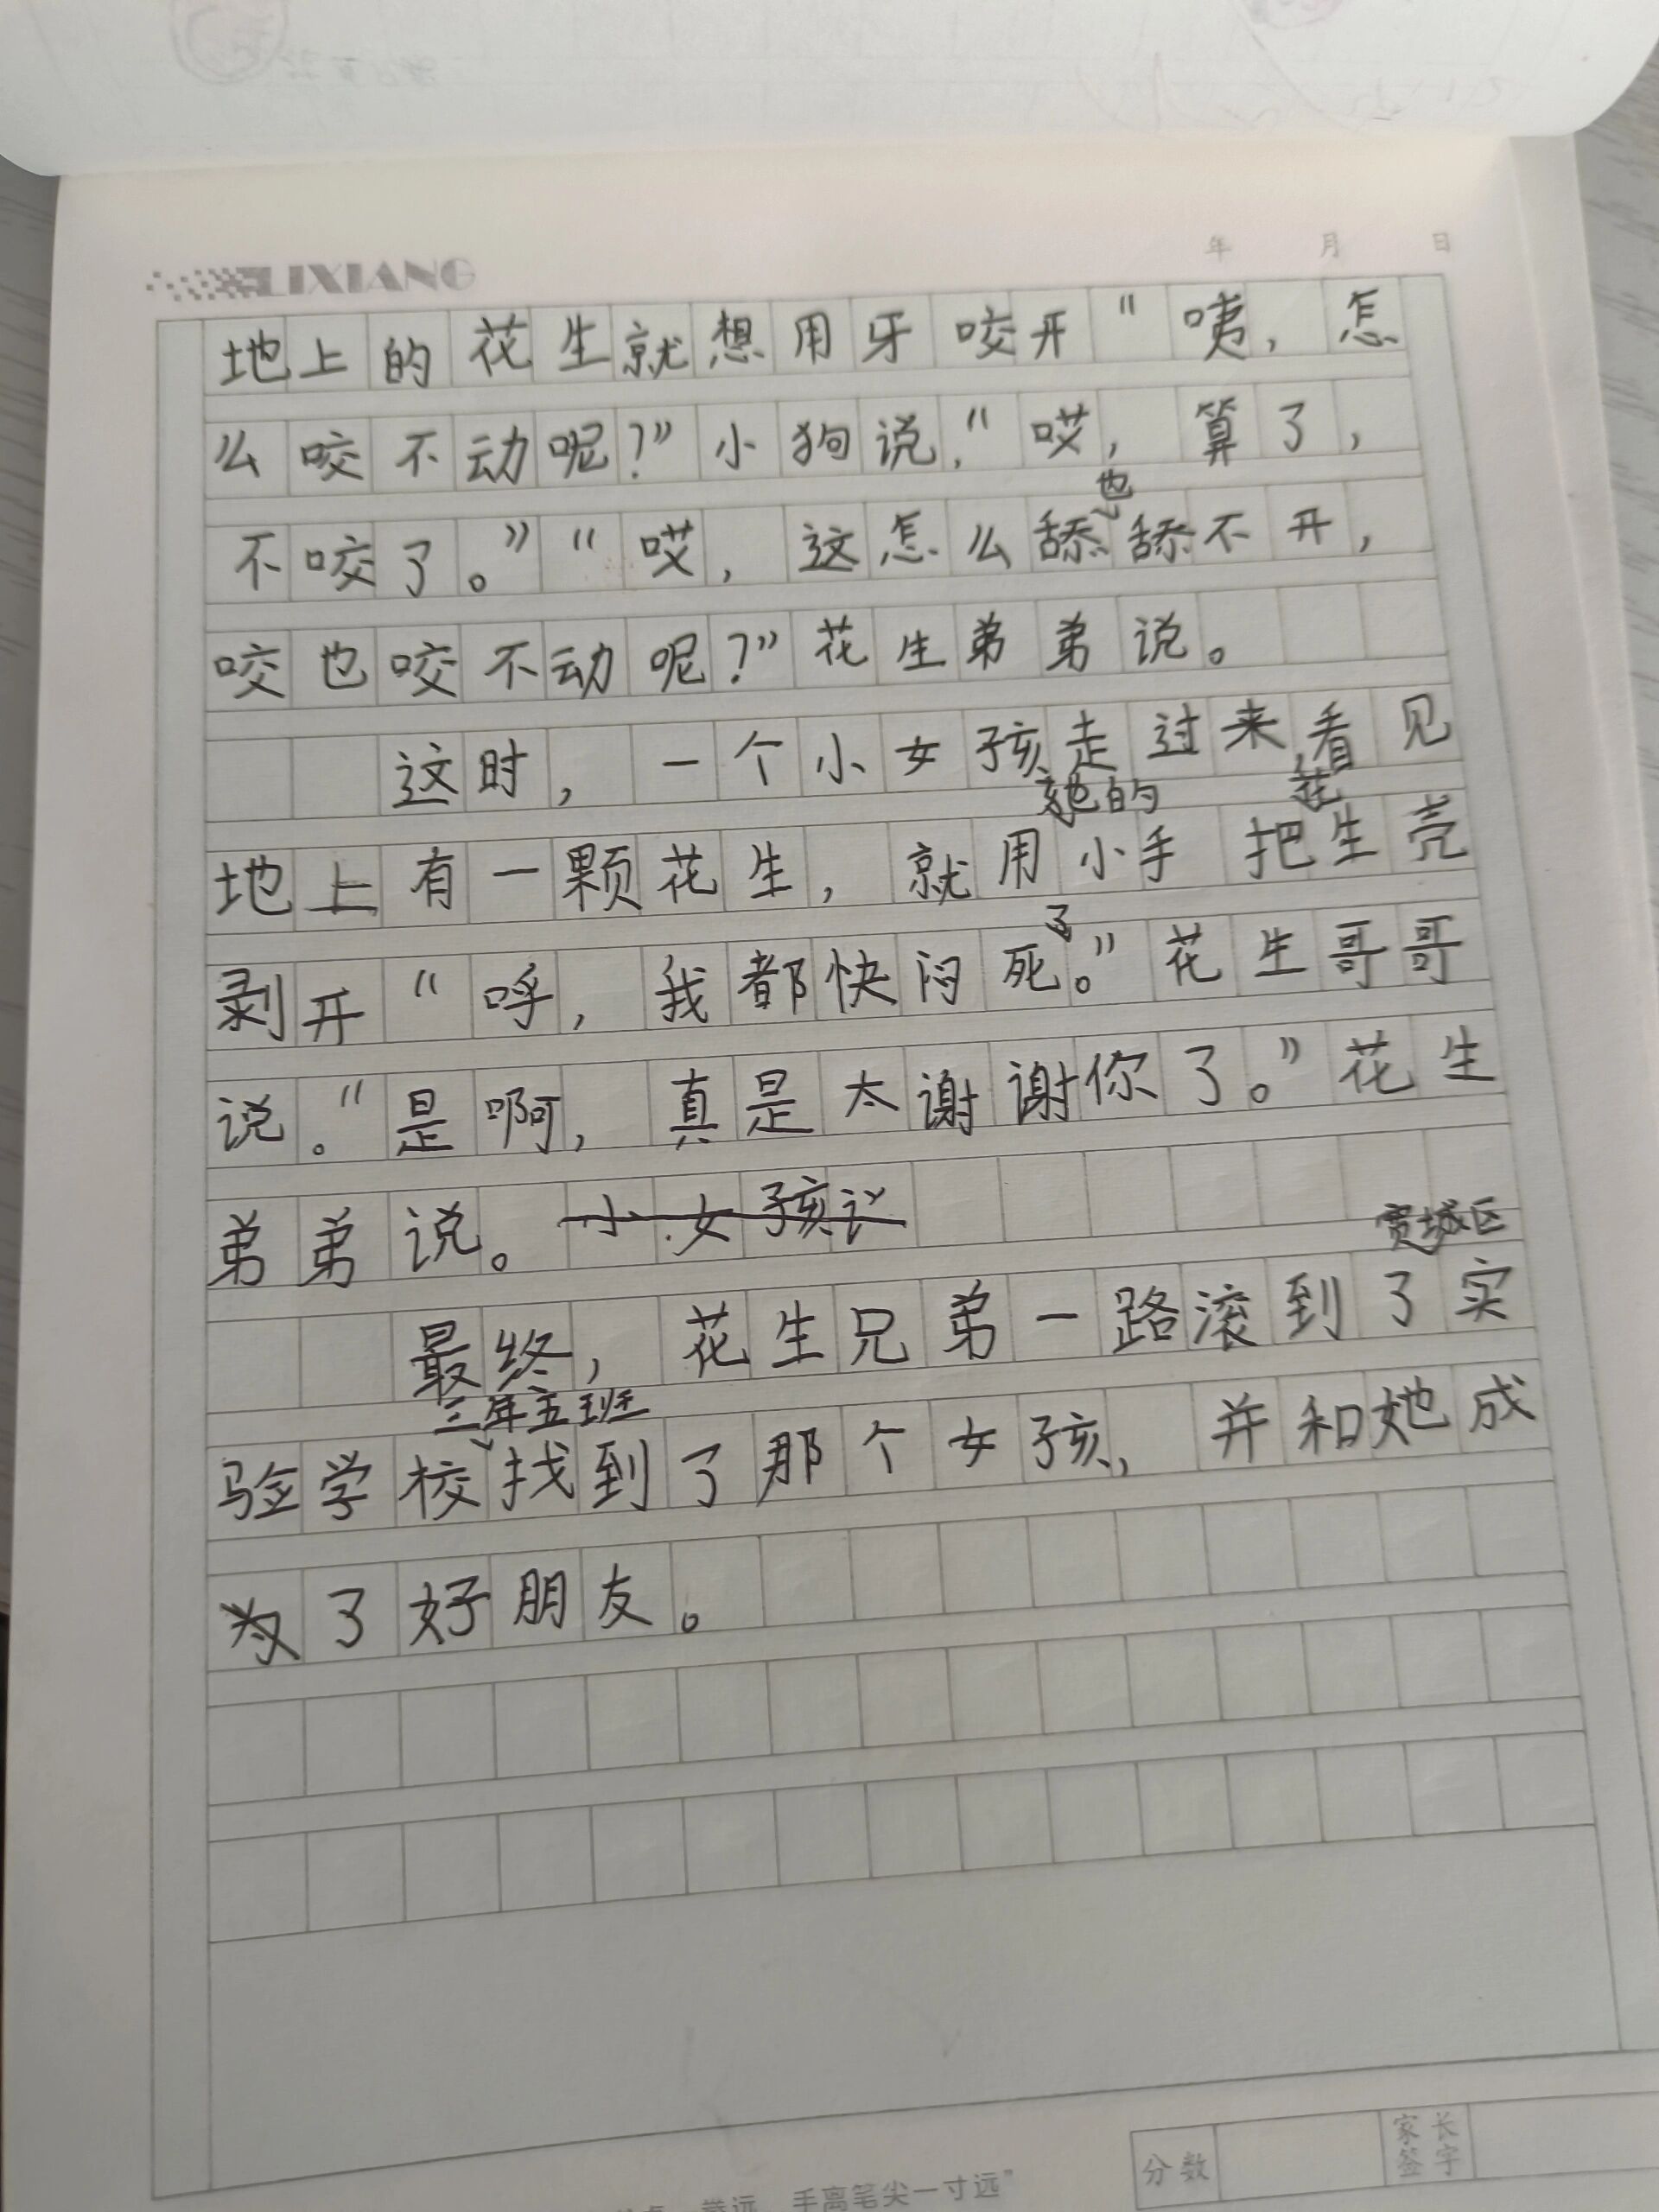 LIXIANG
年 月 日
地上的花生就想用牙咬开“咦，怎
么咬不动呢？”小狗说，“哎，算了，
不咬了。”“哎，这怎么舔也舔不开，
咬也咬不动呢？”花生弟弟说。
这时，一个小女孩走过来，看见
地上有一颗花生，就用她的小手把花生壳
剥开“呼，我都快闷死了。”花生哥哥
说。“是啊，真是太谢谢你了。”花生
弟弟说。小女孩讠
最终，花生兄弟一路滚到了宽城区实
验学校三年五班找到了那个女孩，并和她成
为了好朋友。
分数
家长签字
手离笔尖一寸远”